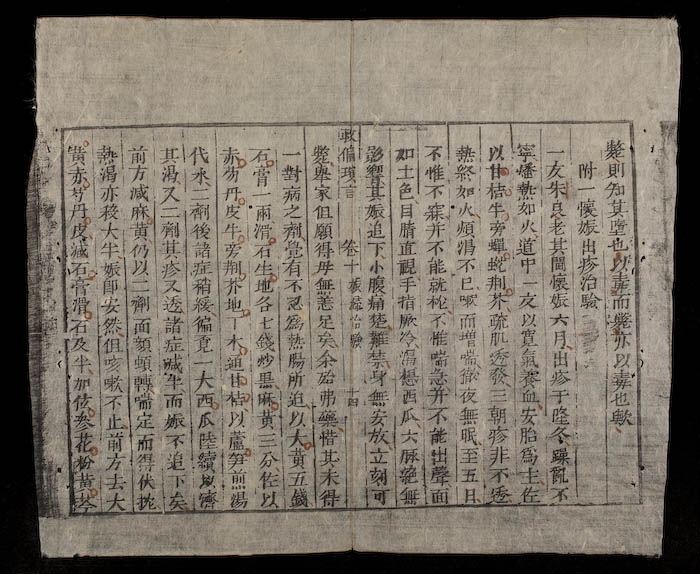 斃則知其墮也以毒而斃亦以毒也歟
附一懷娠出疹治驗
一友朱良老其閫懷娠六月出疹于隆冬躁亂不
寧燔熱如火道中一友以寬氣養血安胎爲主佐
以甘桔牛旁蟬蛇荆芥疏肌透發三朝疹非不透
熱終如火煩渴不已嗽而增喘徹夜無眠至五日
不惟不寐并不能就枕不惟喘急并不能出聲面
如土色目睛直視手指厥冷渴想西瓜六脉絶無
影響其娠追下小腹痛楚難禁身無安放立刻可
斃舉家但願得母無恙足矣余殆弗藥惜其未得
救偏瑣言 卷十 娠疹治驗 十四
一對病之劑覺有不忍爲熱腸所迫以大黃五錢
石膏一兩滑石生地各七錢炒黑麻黃三分佐以
赤芍丹皮牛旁荆芥地丁木通甘桔以蘆笋煎湯
代水二劑後諸症稍緩徧覓一大西瓜陸續以濟
其渴又二劑其疹又透諸症減半而娠不追下矣
前方減麻黃仍以二劑而頭頓轉喘定而得伏枕
熱渴亦殺大半娠即安然但咳嗽不止前方去大
黃赤芍丹皮減石膏滑石及半加伭參花粉黃芩